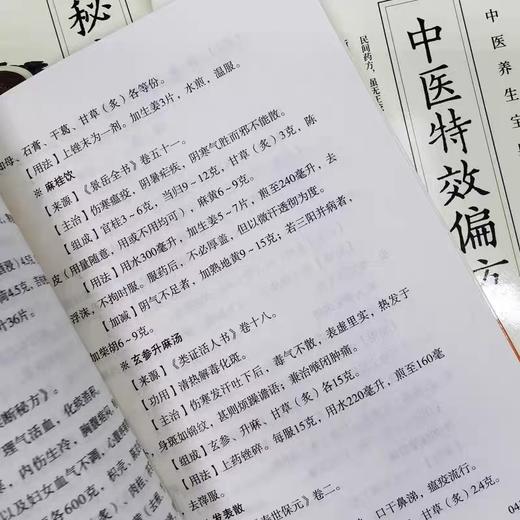 秘
中医特效偏方
中医养生宝
民间药方
知母、石膏、干葛、甘草（炙）各等份。
【用法】上锉末为一剂。加生姜3片，水煎，温服。
※ 麻桂饮
【来源】《景岳全书》卷五十一。
【主治】伤寒瘟疫，阴暑疟疾，阴寒气胜而邪不能散。
【组成】官桂3～6克，当归9～12克，甘草（炙）3克，陈
皮（用量随意，或不用均可），麻黄6～9克。
【用法】用水300毫升，加生姜5～7片，煎至240毫升，去
浮沫，不拘时服。服药后，不必厚盖，但以微汗透彻为度。
【加减】阴气不足者，加熟地黄9～15克；若三阳并病者，
加柴胡6～9克。
※ 玄参升麻汤
【来源】《类证活人书》卷十八。
【功用】清热解毒化斑。
【主治】伤寒发汗吐下后，毒气不散，表虚里实，热发于
身斑如锦纹，甚则烦躁谵语；兼治喉闭肿痛。
【组成】玄参、升麻、甘草（炙）各15克。
【用法】上药锉碎。每服15克，用水220毫升，煎至160毫
去滓服。
发表散
世保元》卷二。
口干鼻涕，瘟疫流行。
甘草（炙）24克。
04
满45克
片36片。
断秘方》。
理气活血，化瘀
内伤生冷，胸腹
以及妇女血气不调，心腹
各600克，枳壳
肉桂